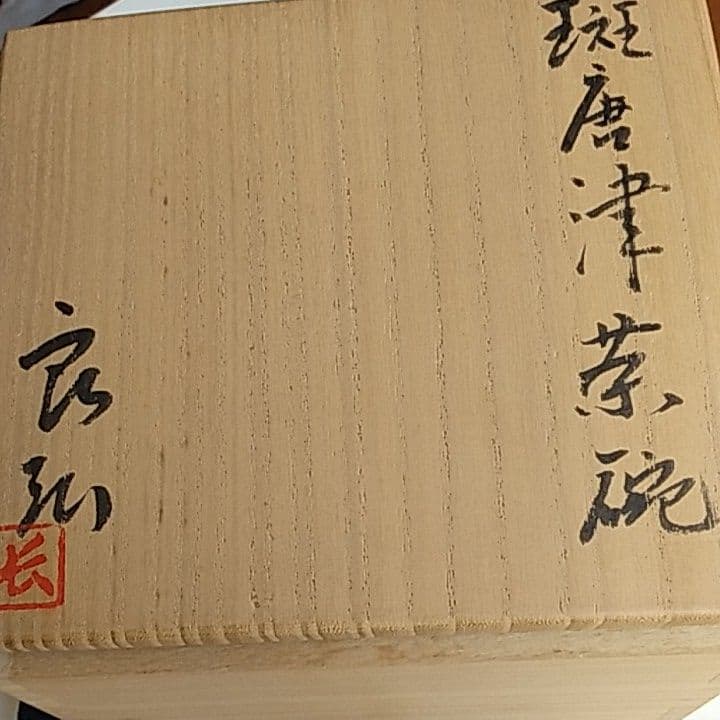 斑唐津茶碗
良弘
长